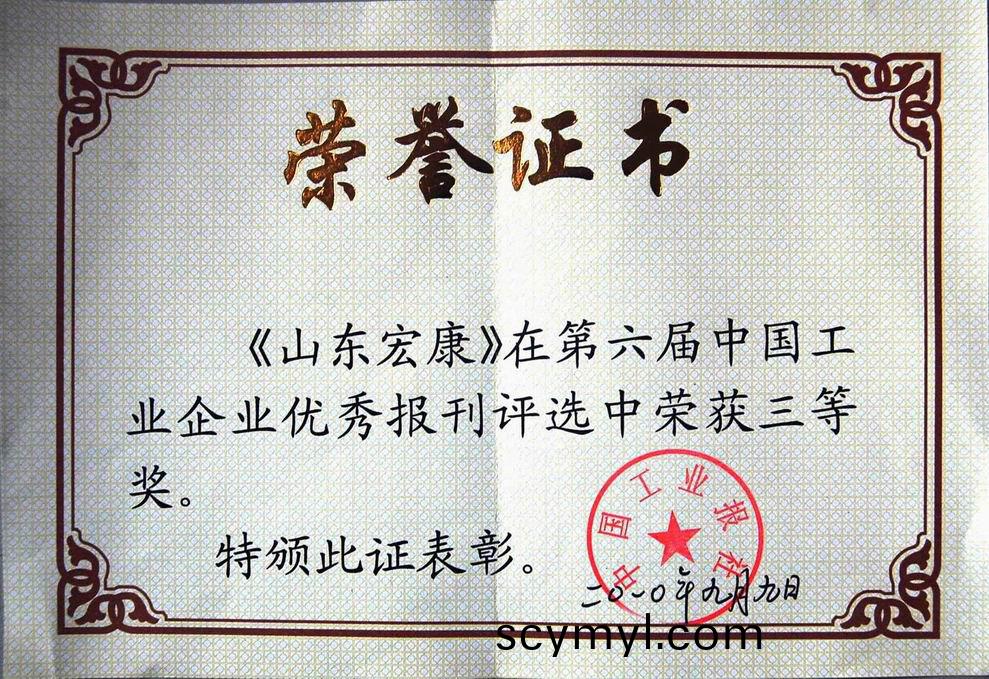 荣誉证书
《山东宏康》在第六届中国工
业企业优秀报刊评选中荣获三等
奖。
特颁此证表彰。
中国工业报社
二〇一〇年九月九日
scymyl.com